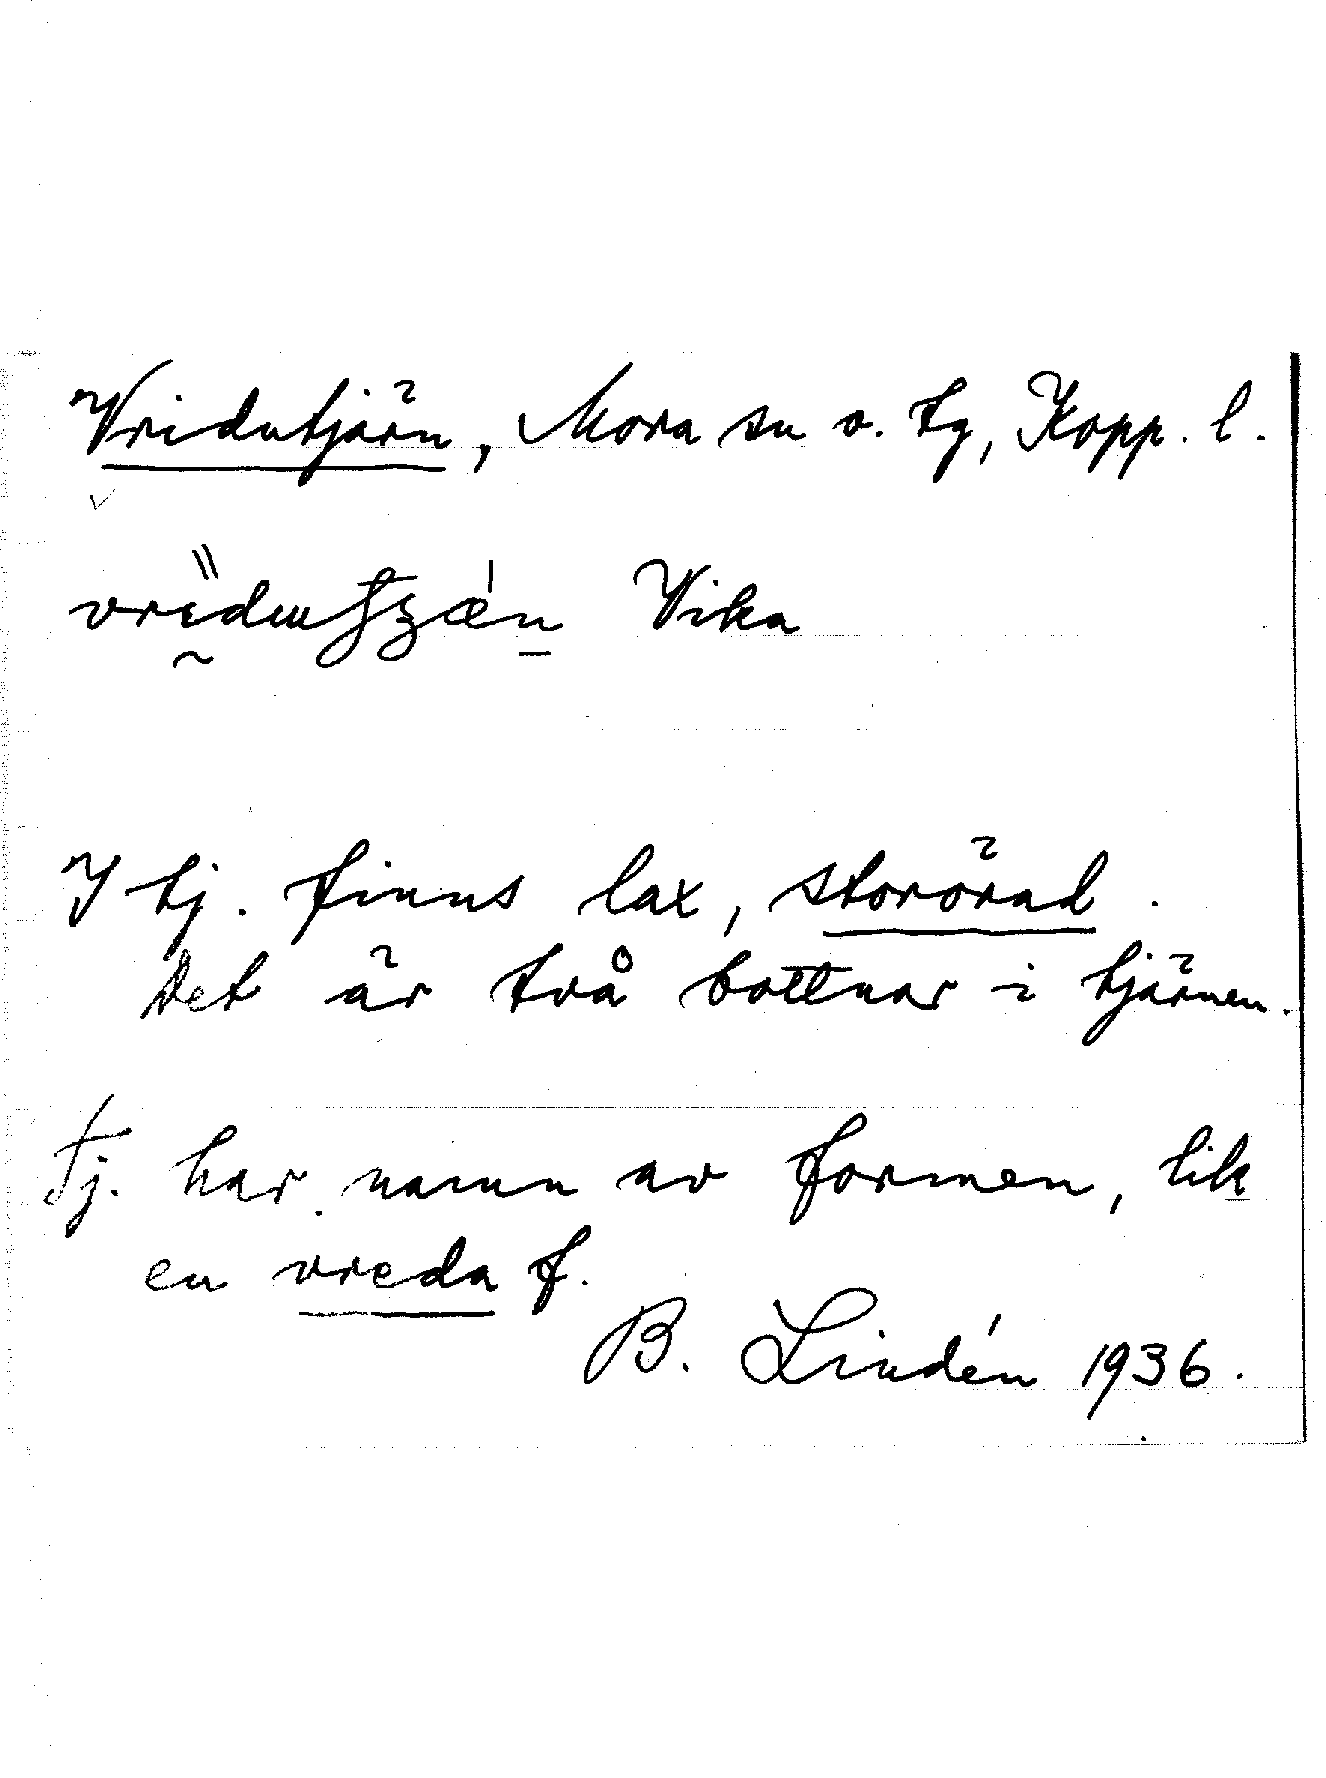 Vridutjärn, Mora sn o. tg, Kopp. l.
Vika
I tj. finns lax, storörad.
Det är två bottnar i tjärnen.
Tj. har namn av formen, lik
en vreda f.
B. Lindén 1936.